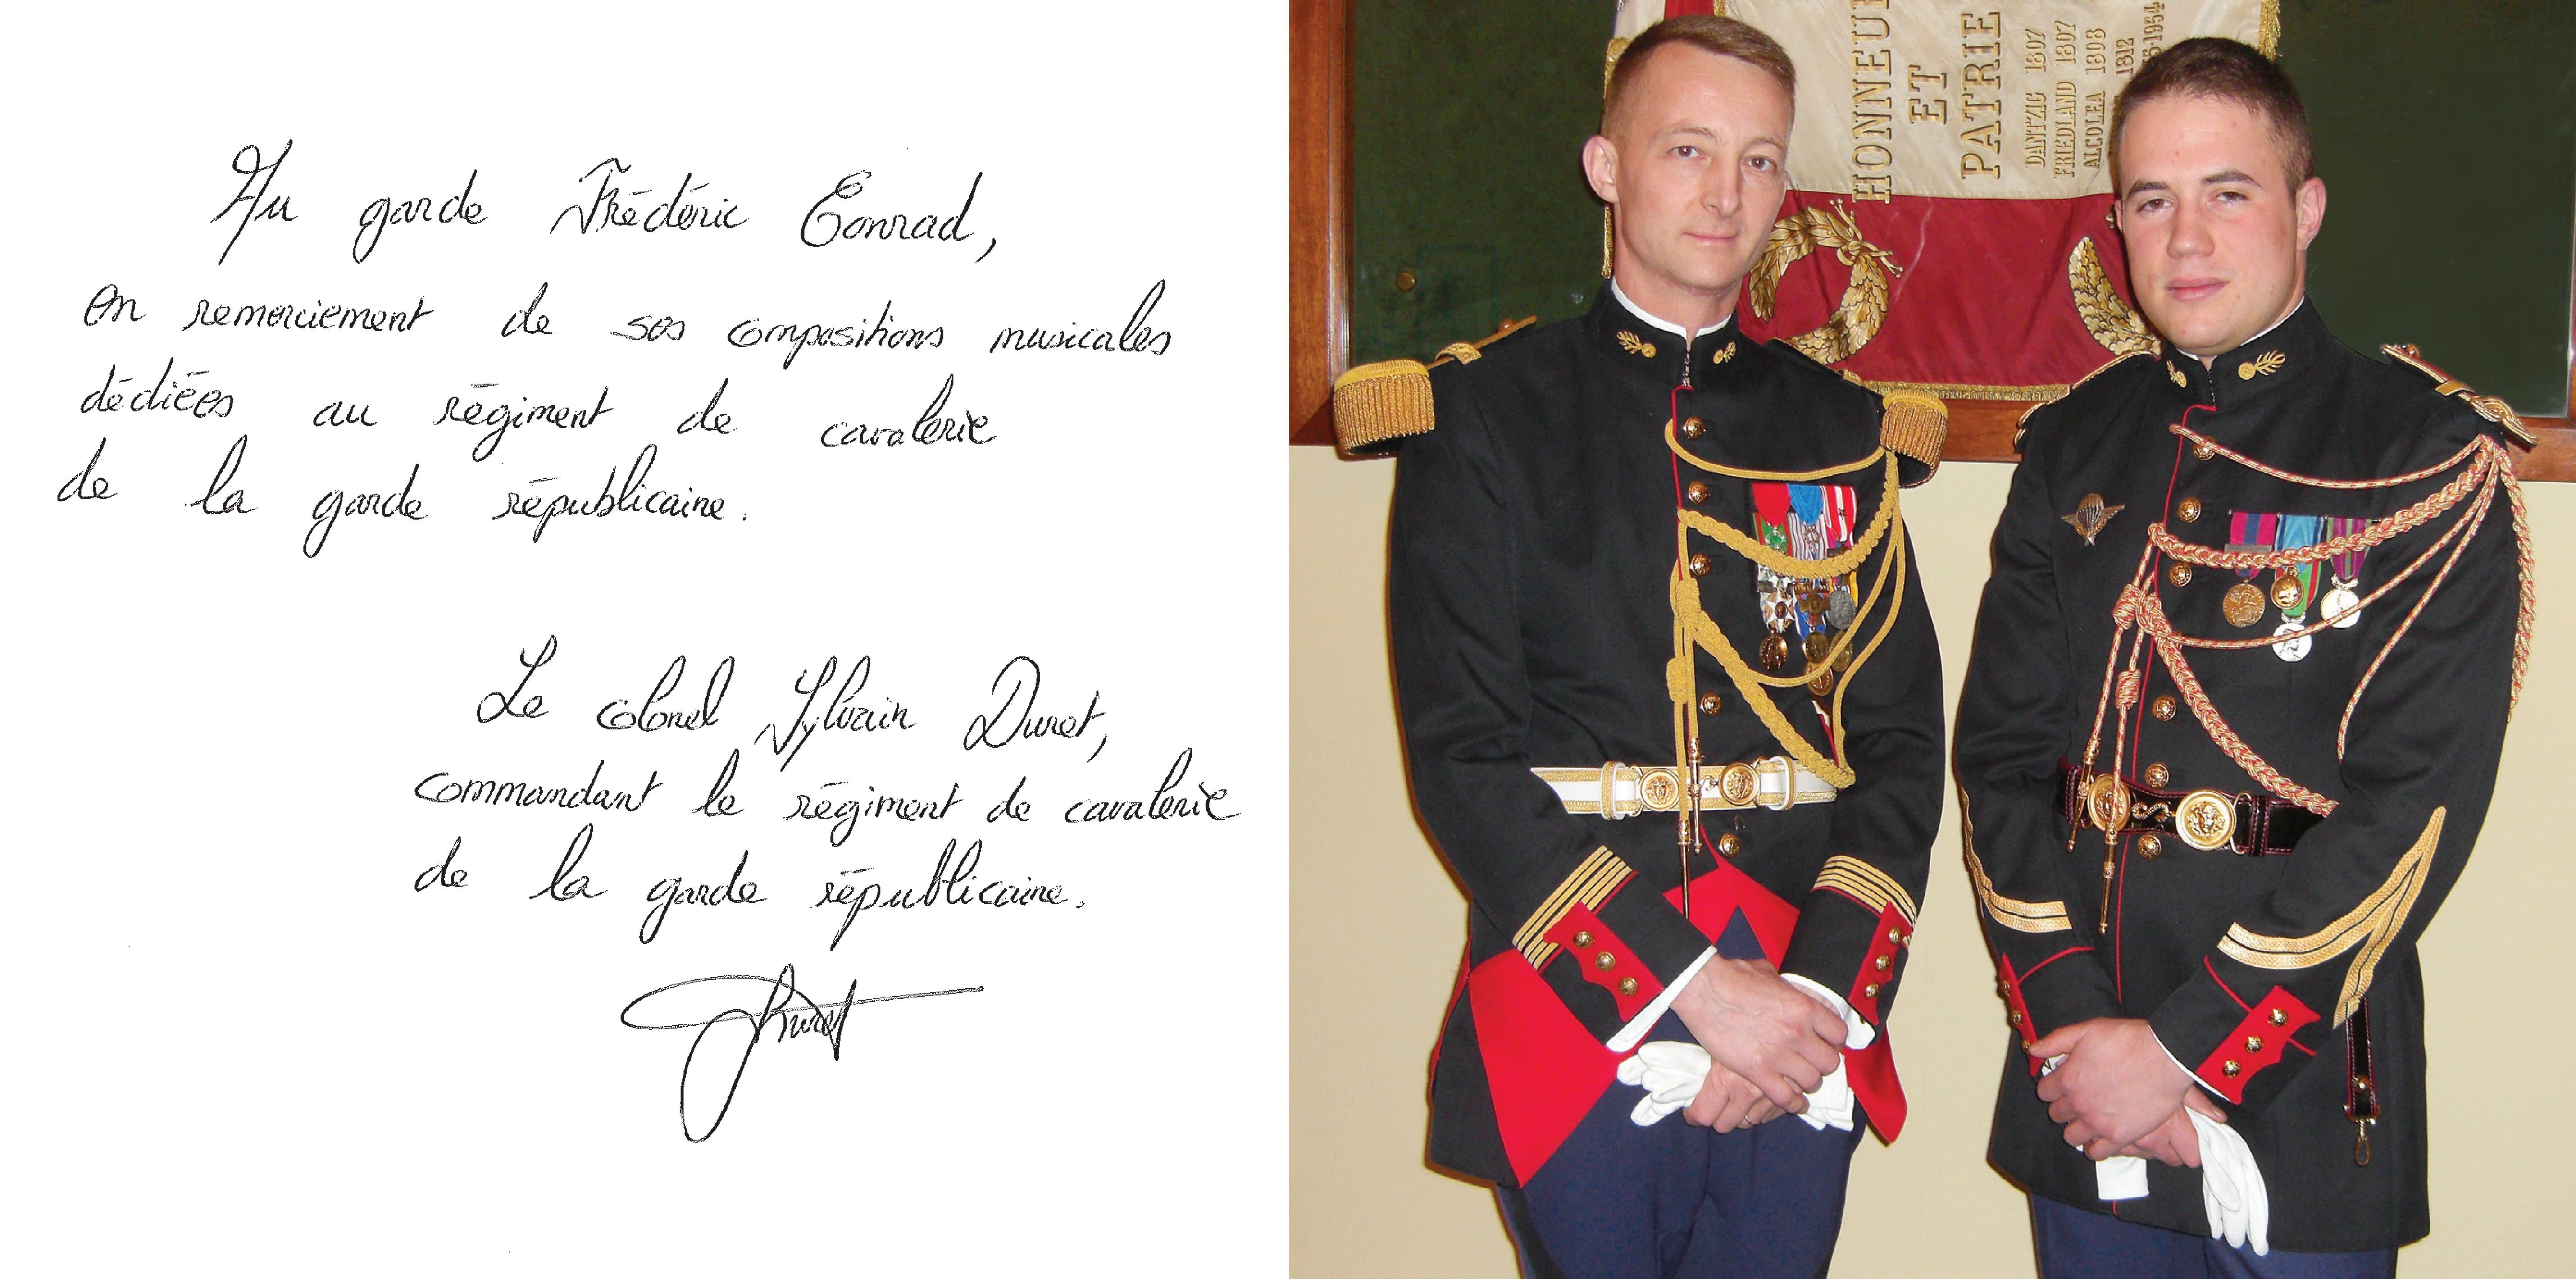 Au garde Frédéric Conrad,
en remerciement de ses compositions musicales
dédiées au régiment de cavalerie
de la garde républicaine.
Le colonel Sylvain Duret,
commandant le régiment de cavalerie
de la garde républicaine.
Duret
HONNEUR
ET
PATRIE
DANTZIC 1807
FRIEDLAND 1807
ALCOLEA 1808
1812
-1954